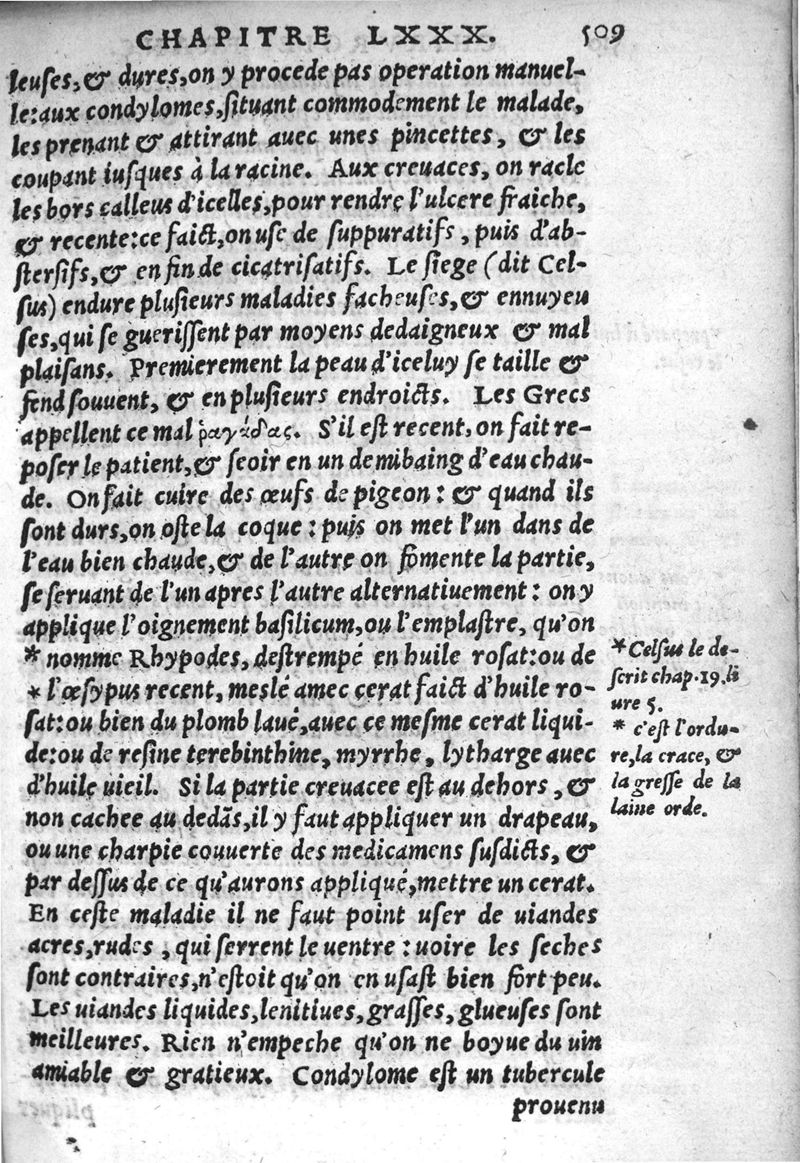 CHAPITRE LXXX. 509
leuſes, & dures, on y procede pas operation manuel-
le: aux condylomes, ſituant commodement le malade,
les prenant & attirant auec unes pincettes, & les
coupant iuſques à la racine. Aux creuaces, on racle
les bors calleus d'icelles, pour rendre l'ulcere fraiche,
& recente: ce faict, on uſe de ſuppuratifs, puis d'ab-
ſterſifs, & en fin de cicatriſatifs. Le ſiege (dit Cel-
ſus) endure pluſieurs maladies facheuſes, & ennuyeu
ſes, qui ſe gueriſſent par moyens dedaigneux & mal
plaiſans. Premierement la peau d'iceluy ſe taille &
fend ſouuent, & en pluſieurs endroicts. Les Grecs
appellent ce mal ῥαγάδας. S'il eſt recent, on fait re-
poſer le patient, & ſeoir en un demibaing d'eau chau-
de. On fait cuire des œufs de pigeon: & quand ils
ſont durs, on oſte la coque: puis on met l'un dans de
l'eau bien chaude, & de l'autre on fomente la partie,
ſe ſeruant de l'un apres l'autre alternatiuement: on y
applique l'oignement baſilicum, ou l'emplaſtre, qu'on
* nomme Rhypodes, deſtrempé en huile roſat: ou de
* l'œſypus recent, meſlé amec cerat faict d'huile ro-
ſat: ou bien du plomb laué, auec ce meſme cerat liqui-
de: ou de reſine terebinthine, myrrhe, lytharge auec
d'huile uieil. Si la partie creuacee eſt au dehors, &
non cachee au dedãs, il y faut appliquer un drapeau,
ou une charpie couuerte des medicamens ſuſdicts, &
par deſſus de ce qu'aurons appliqué, mettre un cerat.
En ceſte maladie il ne faut point uſer de uiandes
acres, rudes, qui ſerrent le uentre: uoire les ſeches
ſont contraires, n'eſtoit qu'on en uſaſt bien fort peu.
Les uiandes liquides, lenitiues, graſſes, glueuſes ſont
meilleures. Rien n'empeche qu'on ne boyue du uin
amiable & gratieux. Condylome eſt un tubercule
prouenu
* Celſus le de-
ſcrit chap. 19. li
ure 5.
* c'eſt l'ordu-
re, la crace, &
la greſſe de la
laine orde.